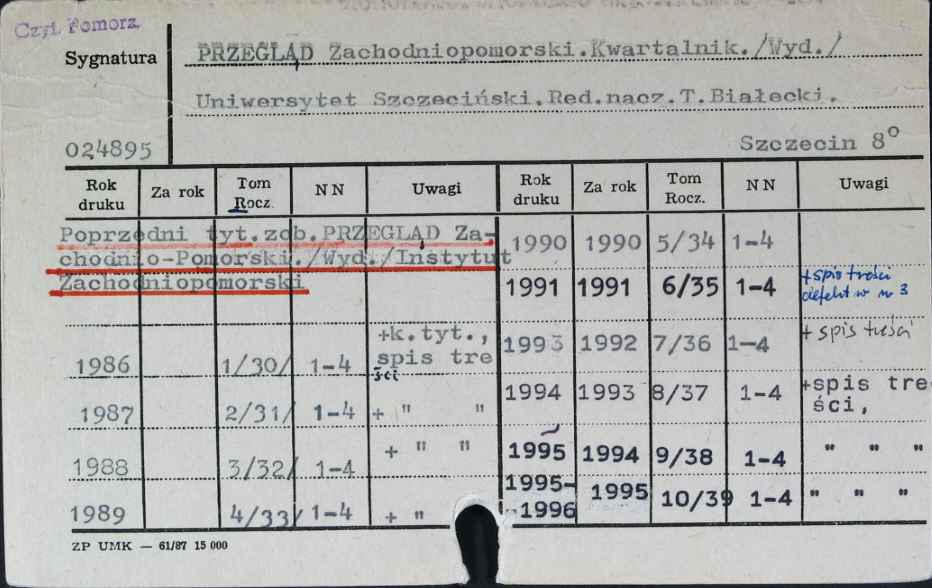 Czyt. Pomorz.
Sygnatura
PRZEGLĄD Zachodniopomorski.Kwartalnik./Wyd./
Uniwersytet Szczeciński.Red.nacz.T.Białecki.
024895
Szczecin 8°
Rok druku Za rok Tom Rocz. NN Uwagi Rok druku Za rok Tom Rocz. NN Uwagi
Poprzedni tyt.zob.PRZEGLĄD Za-
chodnio-Pomorski./Wyd./Instytut
Zachodniopomorski
1986 1/30/ 1-4 +k.tyt., spis tre ści
1987 2/31/ 1-4 + " "
1988 3/32/ 1-4 + " "
1989 4/33/ 1-4 + "
1990 1990 5/34 1-4
1991 1991 6/35 1-4 +spis treści defekt w n 3
1993 1992 7/36 1-4 + spis treści
1994 1993 8/37 1-4 +spis tre ści,
1995 1994 9/38 1-4 " " "
1995-1996 1995 10/39 1-4 " " "
ZP UMK — 61/87 15 000